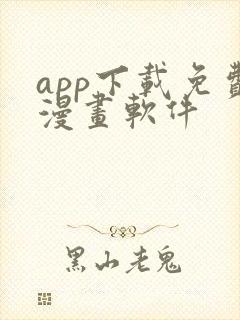 app下載免費
漫畫軟件
黑山老鬼